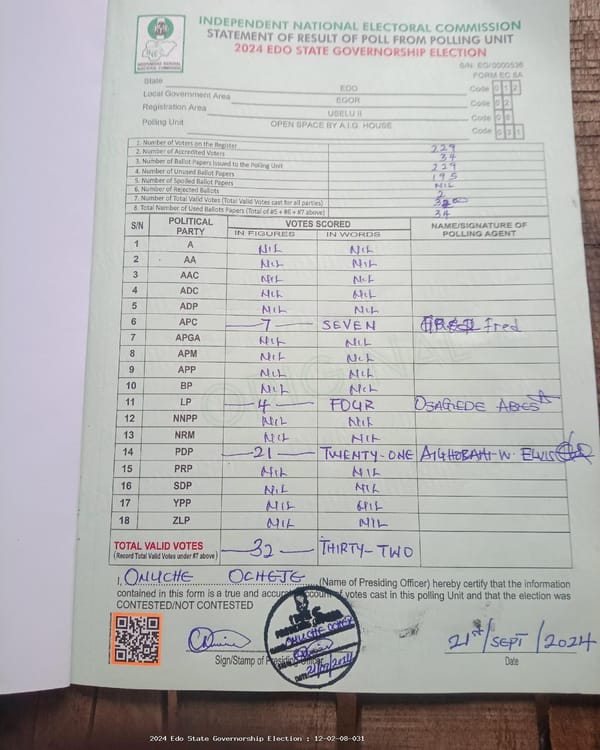 INDEPENDENT NATIONAL ELECTORAL COMMISSION
STATEMENT OF RESULT OF POLL FROM POLLING UNIT
2024 EDO STATE GOVERNORSHIP ELECTION
S/N: EG/0000536
FORM EC 8A
State EDO Code 0 1 2
Local Government Area EGOR Code 0 2
Registration Area USELU II Code 0 8
Polling Unit OPEN SPACE BY A.I.G. HOUSE Code 0 3 1
1. Number of Voters on the Register 229
2. Number of Accredited Voters 34
3. Number of Ballot Papers Issued to the Polling Unit 229
4. Number of Unused Ballot Papers 195
5. Number of Spoiled Ballot Papers NIL
6. Number of Rejected Ballots 2
7. Number of Total Valid Votes (Total Valid Votes cast for all parties) 32
8. Total Number of Used Ballots Papers (Total of #5 + #6 + #7 above) 34
S/N POLITICAL PARTY VOTES SCORED NAME/SIGNATURE OF POLLING AGENT
IN FIGURES IN WORDS
1 A NIL NIL
2 AA NIL NIL
3 AAC NIL NIL
4 ADC NIL NIL
5 ADP NIL NIL
6 APC 7 SEVEN Fred
7 APGA NIL NIL
8 APM NIL NIL
9 APP NIL NIL
10 BP NIL NIL
11 LP 4 FOUR OSAGIEDE
12 NNPP NIL NIL
13 NRM NIL NIL
14 PDP 21 TWENTY-ONE AIGHOBAHI-W. ELVIS
15 PRP NIL NIL
16 SDP NIL NIL
17 YPP NIL NIL
18 ZLP NIL NIL
TOTAL VALID VOTES 32 THIRTY-TWO
(Record Total Valid Votes under #7 above)
I, ONUCHE OCHEJE (Name of Presiding Officer) hereby certify that the information
contained in this form is a true and accurate account of votes cast in this polling Unit and that the election was
CONTESTED/NOT CONTESTED
21st/SEPT/2024
Sign/Stamp of Presiding Officer Date
2024 Edo State Governorship Election : 12-02-08-031